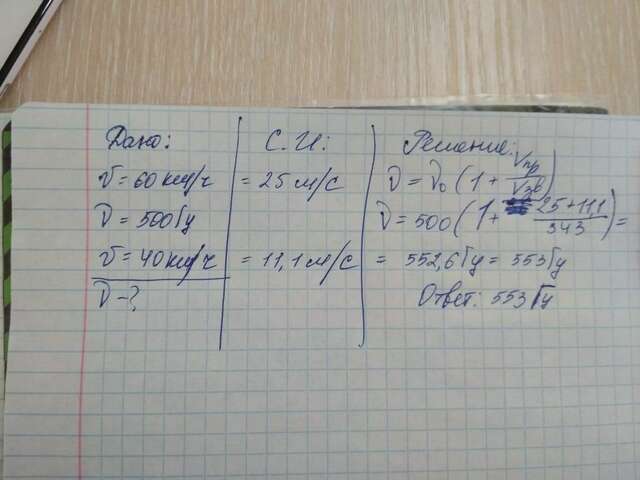 Дано:
υ = 60 км/ч
ν = 500 Гц
υ = 40 км/ч
ν - ?
С.И.:
= 25 м/с
= 11,1 м/с
Решение:
ν = ν₀ (1 + Vпр/Vзв)
ν = 500 (1 + 25+11,1/343) =
= 552,6 Гц = 553 Гц
Ответ: 553 Гц